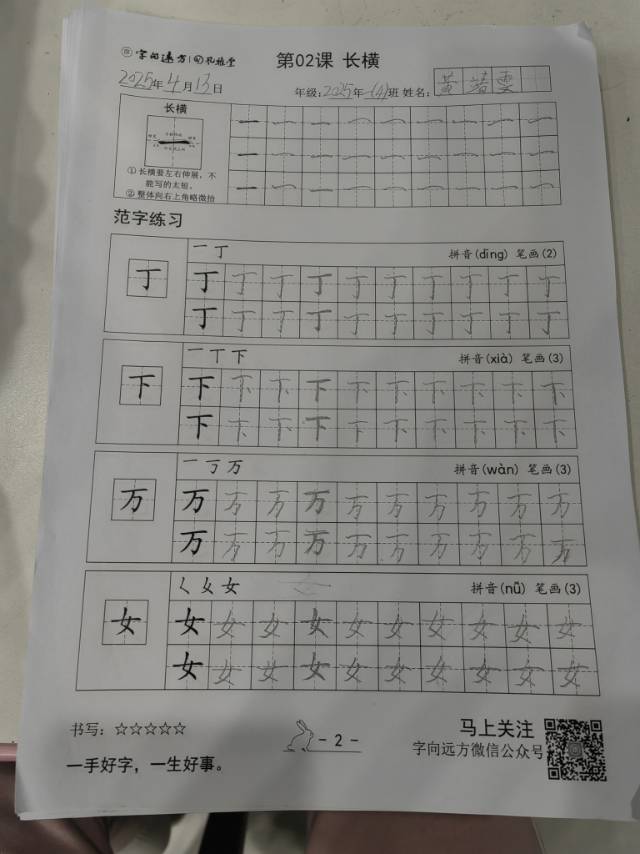 字向远方
第02课 长横
2025年4月13日
年级:2025年(4)班 姓名:黄靖雯
长横
①长横要左右伸展，不
能写的太短。
②整体向右上角略微抬
一 一 一 一 一 一 一 一 一
一 一 一 一 一 一 一 一 一
一 一 一 一 一 一 一 一 一
范字练习
一 丁 拼音(dīng) 笔画(2)
丁
丁 丁 丁 丁 丁 丁 丁 丁 丁 丁
丁 丁 丁 丁 丁 丁 丁 丁 丁 丁
一 丅 下 拼音(xià) 笔画(3)
下
下 下 下 下 下 下 下 下 下 下
下 下 下 下 下 下 下 下 下 下
一 丂 万 拼音(wàn) 笔画(3)
万
万 万 万 万 万 万 万 万 万 万
万 万 万 万 万 万 万 万 万 万
く 女 女 拼音(nǚ) 笔画(3)
女
女 女 女 女 女 女 女 女 女 女
女 女 女 女 女 女 女 女 女 女
书写：☆☆☆☆☆
- 2 -
马上关注
字向远方微信公众号
一手好字，一生好事。